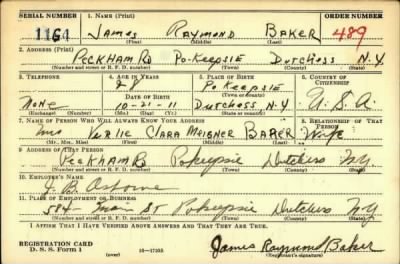 SERIAL NUMBER 1. NAME (Print) ORDER NUMBER
1164 James Raymond Baker 489
(First) (Middle) (Last)
2. ADDRESS (Print)
Peckham Rd Po-Keepsie Dutchess N.Y
(Number and street or R. F. D. number) (Town) (County) (State)
3. TELEPHONE 4. AGE IN YEARS 5. PLACE OF BIRTH 6. COUNTRY OF CITIZENSHIP
28 Po Keepsie
None DATE OF BIRTH (Town or county) U.S.A.
10-21-11 Dutchess N.Y
(Exchange) (Number) (Mo.) (Day) (Yr.) (State or country)
7. NAME OF PERSON WHO WILL ALWAYS KNOW YOUR ADDRESS 8. RELATIONSHIP OF THAT PERSON
Mrs Clara Baker Wife
(Mr., Mrs., Miss) (First) (Middle) (Last)
9. ADDRESS OF THAT PERSON
Peckham Rd Pokeepsie Dutchess NY
(Number and street or R. F. D. number) (Town) (County) (State)
10. EMPLOYER'S NAME
J. B. Osborne
11. PLACE OF EMPLOYMENT OR BUSINESS
584 Main St Pokeepsie Dutchess NY
(Number and street or R. F. D. number) (Town) (County) (State)
I AFFIRM THAT I HAVE VERIFIED ABOVE ANSWERS AND THAT THEY ARE TRUE.
REGISTRATION CARD
D. S. S. Form 1 16—17105 James Raymond Baker
(Registrant's signature)